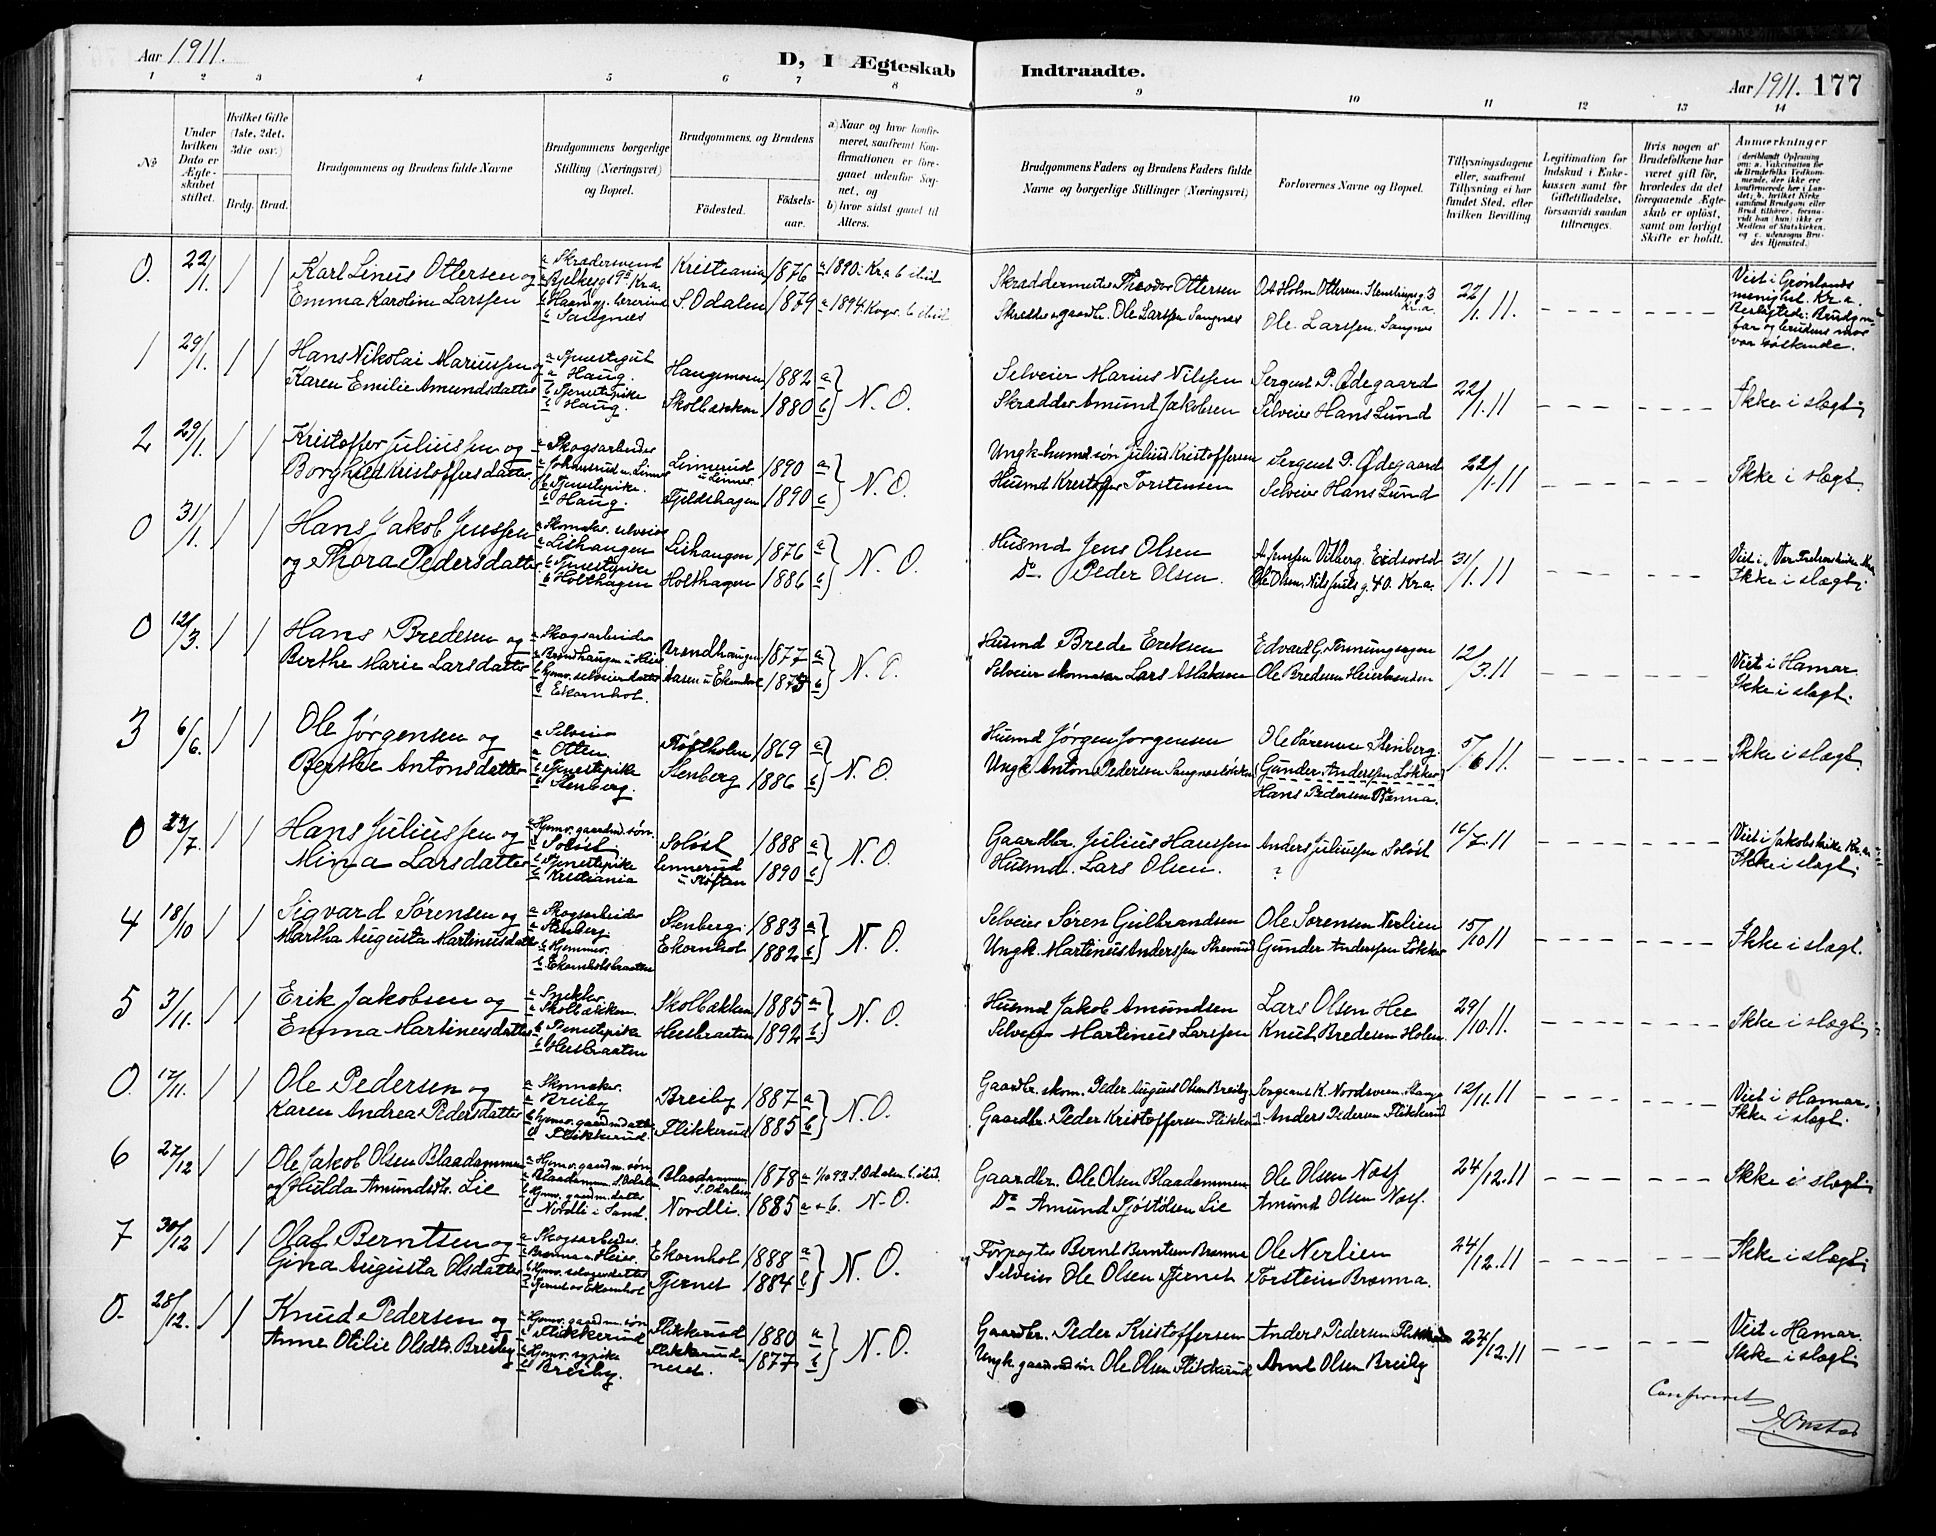 Aar 1911.
D, I Ægteskab Indtraadte.
Aar 1911. 177
1 2 3 4 5 6 7 8 9 10 11 12 13 14
No
Under hvilken Dato er Ægteskabet stiftet.
Hvilket Gifte (1ste, 2det, 3die osv.)
Brdg. Brud.
Brudgommens og Brudens fulde Navne
Brudgommens borgerlige Stilling (Næringsvei) og Bopæl.
Brudgommens og Brudens
Födested.
Födselsaar.
a) Naar og hvor konfirmeret, saafremt Konfirmationen er foregaaet udenfor Sognet, og
b) hvor sidst gaaet til Alters.
Brudgommens Faders og Brudens Faders fulde Navne og borgerlige Stillinger (Næringsvei)
Forlovernes Navne og Bopæl.
Tillysningsdagene eller, saafremt Tillysning ei har fundet Sted, efter hvilken Bevilling
Legitimation for Indskud i Enkekassen samt for Giftetilladelse, forsaavidt saadan tiltrænges.
Hvis nogen af Brudefolkene har været gift før, hvorledes da det foregaaende Ægteskab er oplöst, samt om lovligt Skifte er holdt.
Anmærkninger
0. 22/1. / / Karl Linus Ottersen og
Emma Karoline Larssen
a Skrædersvend
b Sangnæs
Kristiania 1876 a 1890 i Kr.a b ibid
S. Odalen 1879 a 1894 Kogsv. b ibid
Skræddermester Theodor Ottersen
Skrædder og gaardbr. Ole Larssen Sangnæs
Ole Larssen. Sangnæs
22/1. 11.
Viet i Grønlands menighet. Kr.a.
Beslægtede: Brudg.m far og brudens mor var søskende.
1 29/1. / / Hans Nikolai Mariussen og
Karen Emilie Amundsdatter
a Tjenestegut
a Haug.
b Tjenestepike
b Haug.
Haugemoen 1882 a
Skolbækken 1880 b N. O.
Selveier Marius Nilssen
Skrædder Amund Jakobsen
Sergent P. Ødegaard
Selveier Hans Lund
22/1. 11
Ikke i slægt.
2 29/1. / / Kristoffer Juliussen og
Borghild Kristoffersdatter
a Skogsarbeider
b Tjenestepike.
b Haug.
Linnerud u Linner. 1890 a
Fjeldshagen 1890 b N. O.
Ungk. husmd. søn Julius Kristoffersen
Husmd Kristoffer Torstensen
Sergent P. Ødegaard
Selveier Hans Lund
22/1. 11
Ikke i slægt.
0 31/1. / / Hans Jakob Jenssen
og Thora Pedersdatter
a Skomaker. selveier
a Lishaugen
b Tjenestepike
b Holthagen
Lishaugen 1876 a
Holthagen 1886 b N. O.
Husmd Jens Olsen
Do. Peder Olsen.
A. Jenssen Vilberg. Eidsvold
Ole Olsen, Nils Juels g. 40. Kr.a.
31/1. 11
Ikke i slægt.
0 12/3. / / Hans Bredesen og
Berthe Marie Larsdatter
a Skogsarbeider
a Brændhaugen u Heier
b Hjemv. selveierdatter
b Ekornhol.
Brændhaugen 1877 a
Aasen u Ekornhol 1875 b N. O.
Husmd Brede Eriksen
Selveier skomaker Lars Aslaksen
Edvard G. Tenningsegen
Ole Bredesen Heierbraaten
12/3. 11
Viet i Hamar.
Ikke i slægt.
3 6/6. / / Ole Jørgensen og
Berthe Antonsdatter
a Selveier
a Otten
b Tjenestepike
b Stenberg.
Røftholen 1869 a
Stenberg 1886 b N. O.
Husmd Jørgen Jorgensen
Ungk. Anton Pedersen Sangnesløkken
Ole Sørensen Stenberg.
Gunder Anderssen Løkker
Hans Pedersen Brænna.
5/6 11.
Ikke i slægt.
0 23/7. / / Hans Juliussen og
Mina Larsdatter
a Hjemv. gaardm. søn.
a Soløst
b Tjenestepike
b Kristiania
Soløst 1888 a
Linnerud u Røften 1890 b N. O.
Gaardbr. Julius Hanssen
Husmd. Lars Olsen.
Anders Juliussen Soløst
?
16/7. 11
Viet i Jakobskirke Kr.a.
Ikke i slægt.
4 18/10 / / Sigvard Sørensen og
Martha Augusta Martinusdatter
a Skogsarbeider
a Stenberg.
b Hjemmev.
b Ekornholsbraaten
Stenberg. 1883 a
Ekornhol 1882 b N. O.
Selveier Søren Gulbrandsen
Ungk. Martinus Anderssen
Ole Sørensen Nerlien
Gunder Anderssen Løkker
15/10. 11
Ikke i slægt.
5 3/11. / / Erik Jakobsen og
Emma Martinusdatter
a Snekker.
a Skolbækken.
b Tjenestepike
b Heesbraaten
Skolbækken 1885 a
Heesbraaten 1892 b N. O.
Husmd Jakob Amundsen
Selveier Martinus Larssen
Lars Olsen Hee
Knut Bredesen Holen.
29/10. 11.
Ikke i slægt.
0. 12/11. / / Ole Pedersen og
Karen Andrea Pedersdatter
a Skomaker.
a Breiby
b Hjemv. gaardm datter
b Flikkerud.
Breiby 1887 a
Flikkerud 1885 b N. O.
Gaardbr. skom. Peder August Olsen Breiby
Gaardbr. Peder Kristoffersen Flikkerud.
Sergeant K. Nordsveen. Stange
Anders Pedersen Flikkerud
12/11. 11
Viet i Hamar.
Ikke i slægt.
6 27/12 / / Ole Jakob Olsen Blaadammen
og Hulda Amundsdt. Lie
a Hjemv. gaardm. søn
a Blaadammen S. Odalen
b Hjemv. gaardm. datter
b Nordli i Sand.
Blaadammen S. Odalen 1878 a 1/10 93 S. Odalen b ibid.
Nordli. 1885 a + b. N. O.
Gaardbr. Ole Olsen Blaadammen
Do Amund Tjøstølsen Lie
Ole Olsen Næss
Amund Olsen Næss.
24/12. 11
Ikke i slægt.
7 30/12 / / Olaf Berntsen og
Gina Augusta Olsdatter
a Skogsarbeider.
a Brænna u. Heier.
b Hjemv. selveierdatter
b Tjernet av Ekornhol
Ekornhol 1888 a
Tjernet 1884 b N. O.
Forpagter Bernt Berntsen Brænna
Selveier Ole Olsen Tjernet
Ole Nerlien
Torstein Brænna.
24/12. 11
Ikke i slægt.
0. 28/12. / / Knud Pedersen og
Anne Otilie Olsdt. Breiby
a Hjemv. gaardm. søn
a Flikkerud
b Hjemv. sypike
b Breiby.
Flikkerud 1880 a
Flikkerudnesd. 1877 b N. O.
Gaardbr. Peder Kristoffersen
Ungk. gaardmd søn Ole Olsen Flikkerud
Anders Pedersen Flikkerud
Arne Olsen Breiby
24/12. 11
Viet i Hamar.
Ikke i slægt.
Confereret